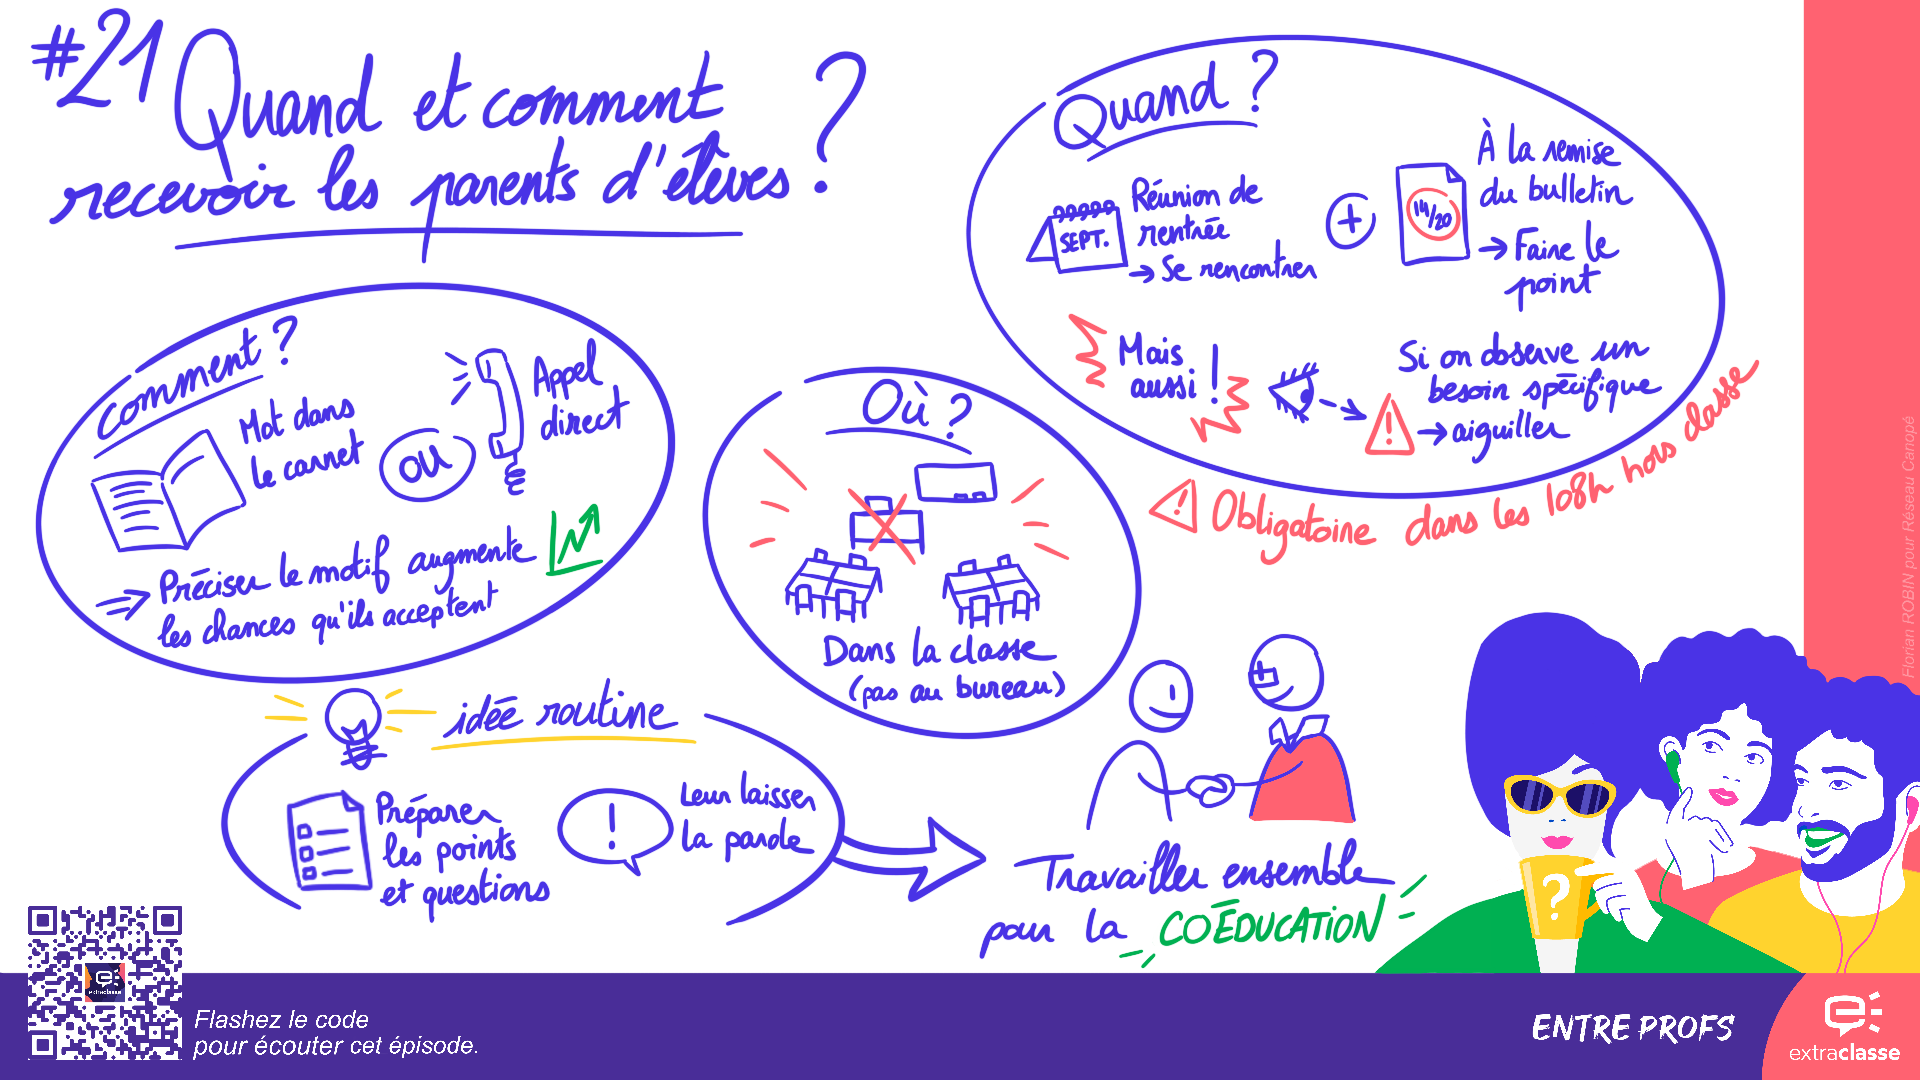 #21 Quand et comment
recevoir les parents d'élèves ?
Quand ?
SEPT.
Réunion de
rentrée
→ Se rencontrer
+
14/20
À la remise
du bulletin
→ Faire le
point
Mais
aussi !
Si on observe un
besoin spécifique
→ aiguiller
Obligatoire dans les 108h hors classe
Comment ?
Mot dans
le carnet
ou
Appel
direct
⇒ Préciser le motif augmente
les chances qu'ils acceptent
Où ?
Dans la classe
(pas au bureau)
idée routine
Préparer
les points
et questions
!
Leur laisser
la parole
Travailler ensemble
pour la COÉDUCATION
?
Florian ROBIN pour Réseau Canopé
extraclasse
Flashez le code
pour écouter cet épisode.
ENTRE PROFS
extraclasse